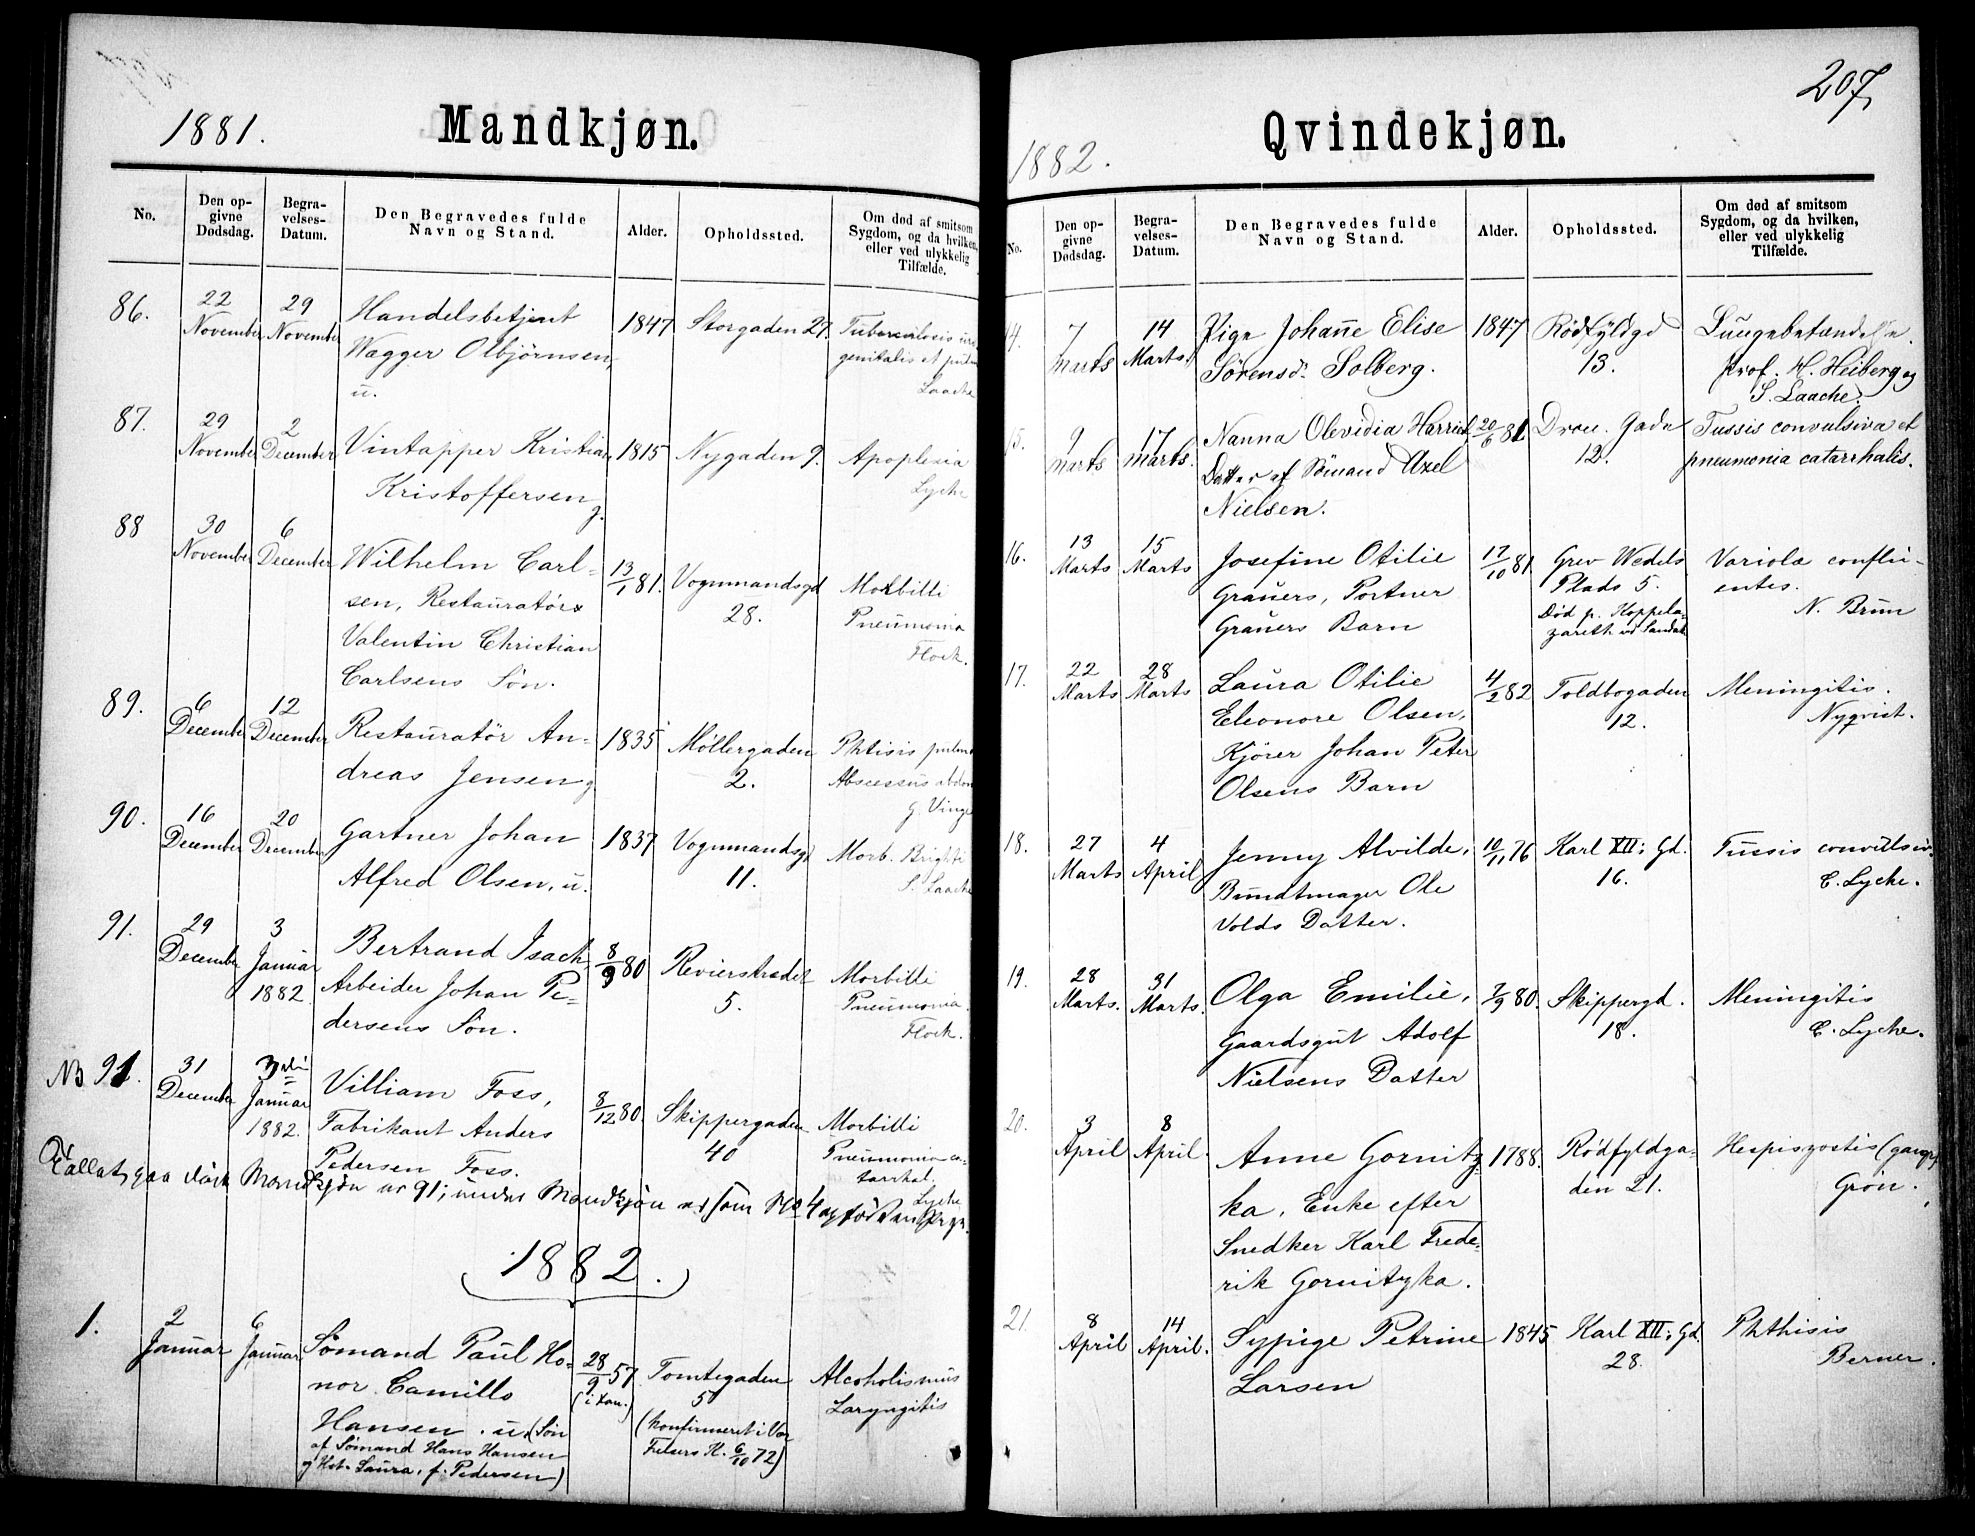 1881.
Mandkjøn.
No.
Den opgivne Dødsdag.
Begravelses-Datum.
Den Begravedes fulde Navn og Stand.
Alder.
Opholdssted.
Om død af smitsom Sygdom, og da hvilken, eller ved ulykkelig Tilfælde.
86.
22 November
29 November
Handelsbetjent
Wagger Olbjörnsen,
u.
1847
Storgaden 27.
Tuberculosis uro
genitalis et pulm
Laache
87.
29 November
2 December
Vintapper Kristian
Kristoffersen
g.
1815
Nygaden 9.
Apoplexia
Lyche
88
30 November
6 December
Wilhelm Carl-
sen, Restauratör
Valentin Christian
Carlsens Sön.
13/1 81.
Vognmandsgd
28.
Morbilli
Pneumonia
Flock.
89.
6 December
12 December
Restauratör An-
dreas Jensen g.
1835
Møllergaden
2.
Phtisis pulm
Abscessus abdom
G. Vinge
90.
16 December
20 December
Gartner Johan
Alfred Olsen, u.
1837
Vognmandsgd
11.
Morb. Brighti
S. Laache
91.
29 December
3 Januar 1882.
Bertrand Isach
Arbeider Johan Pe-
dersens Sön.
8/9 80
Revierstrædet
5.
Morbilli
Pneumonia.
Flock.
NB 91.
31 December
3 Januar 1882.
Villiam Foss,
Fabrikant Anders
Pedersen Foss.
8/12 80.
Skippergaden
40
Morbilli
Pneumonia ca-
tarrhal.
Lyche
Mandkjön nr 91; under Mandkjön som No 4
1882.
1.
2 Januar
6 Januar
Sømand Paul Ho-
nor Camillo
Hansen. u. (Søn
af Sømand Hans Hansen
og Hst. Laura, f. Pedersen)
28/9 57
Tomtegaden
5
(konfirmeret i Vor
Frelsers K. 6/10 72)
Alcoholismus
Laryngitis
207,
Qvindekjøn.
1882.
No.
Den opgivne Dødsdag.
Begravelses-Datum.
Den Begravedes fulde Navn og Stand.
Alder.
Opholdssted.
Om død af smitsom Sygdom, og da hvilken, eller ved ulykkelig Tilfælde.
14.
7 Marts
14 Marts.
Pige Johanne Elise
Sörensd. Solberg.
1847
Rødfyldgd
13.
Lungebetændelse.
Prof. H. Heiberg og
S. Laache.
15.
9 Marts
17 Marts.
Nanna Olevidia Harriet
Datter af Sömand Axel
Nielsen.
20/6 81
Dron. Gade
12.
Tussis convulsiva et
pneumonia catarrhalis.
16.
13 Marts
15 Marts
Josefine Otilie
Grauers, Portner
Grauers Barn
17/10 81
Grev Wedels
Plads 5.
Død p. Koppela-
Variola conflu-
entes.
N. Brun
17.
22 Marts
28 Marts
Laura Otilie
Eleonore Olsen,
Kjörer Johan Peter
Olsens Barn
4/2 82
Toldbogaden
12.
Meningitis.
Nyqvist.
18.
27 Marts
4 April
Jenny Alvilde,
Bundtmager Ole
Volds Datter.
10/11 76
Karl XII: Gd.
16.
Tussis convulsiv.
E. Lyche.
19.
28 Marts.
31 Marts.
Olga Emilie,
Gaardsgut Adolf
Nielsens Datter
7/9 80
Skippergd.
18.
Meningitis
E. Lyche.
20.
3 April
8 April.
Anne Gornitz-
ka, Enke efter
Snedker Karl Frede-
rik Gornitzka.
1788.
Rødfyldga-
den 21.
Grön.
21.
8 April
14 April.
Sypige Petrine
Larsen
1845
Karl XII: Gd.
28.
Phthisis
Berner.